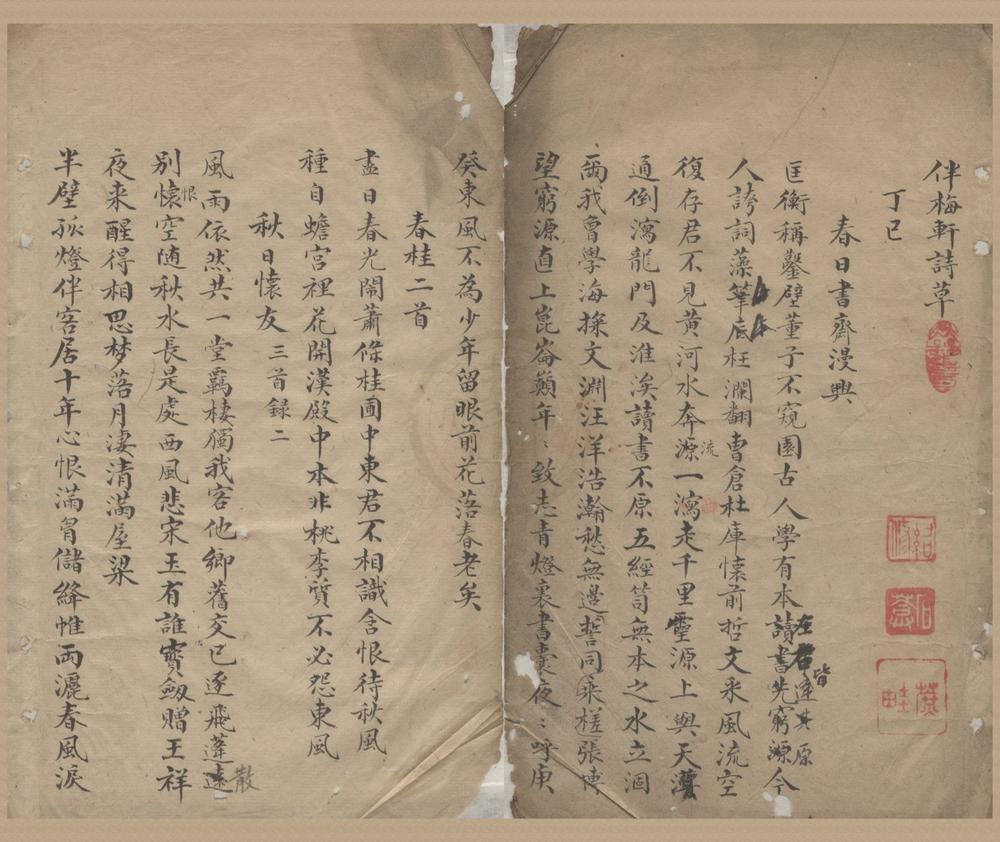 伴梅軒詩草
丁巳
春日書齋漫興
匡衡稱鑿壁董子不窺園古人學有本讀書先窮源今
左右逢其原
皆
人誇詞藻筆底枉瀾翻曹倉杜庫懷前哲文采風流空
復存君不見黃河水奔源一瀉走千里靈源上與天
流
通倒瀉龍門及淮涘讀書不原五經笥無本之水立涸
爾我曾學海探文淵汪洋浩瀚愁無邊誓同乘槎張博
望窮源直上崑崙巔年ミ致志青燈裏書裏夜ミ呼庚
癸東風不為少年留眼前花落春老矣
春桂二首
盡日春光鬧蕭條桂圃中東君不相識含恨待秋風
種自蟾宮裡花開漢殿中本非桃李質不必怨東風
秋日懷友 三首錄二
風雨依然共一堂羈棲獨我客他鄉舊交已逐飛蓬遠
散
別懷空隨秋水長是處西風悲宋玉有誰寶劍贈王祥
恨
夜來醒得相思梦落月淒清滿屋梁
半壁孤燈伴客居十年心恨滿胷儲絳帷雨灑春風淚